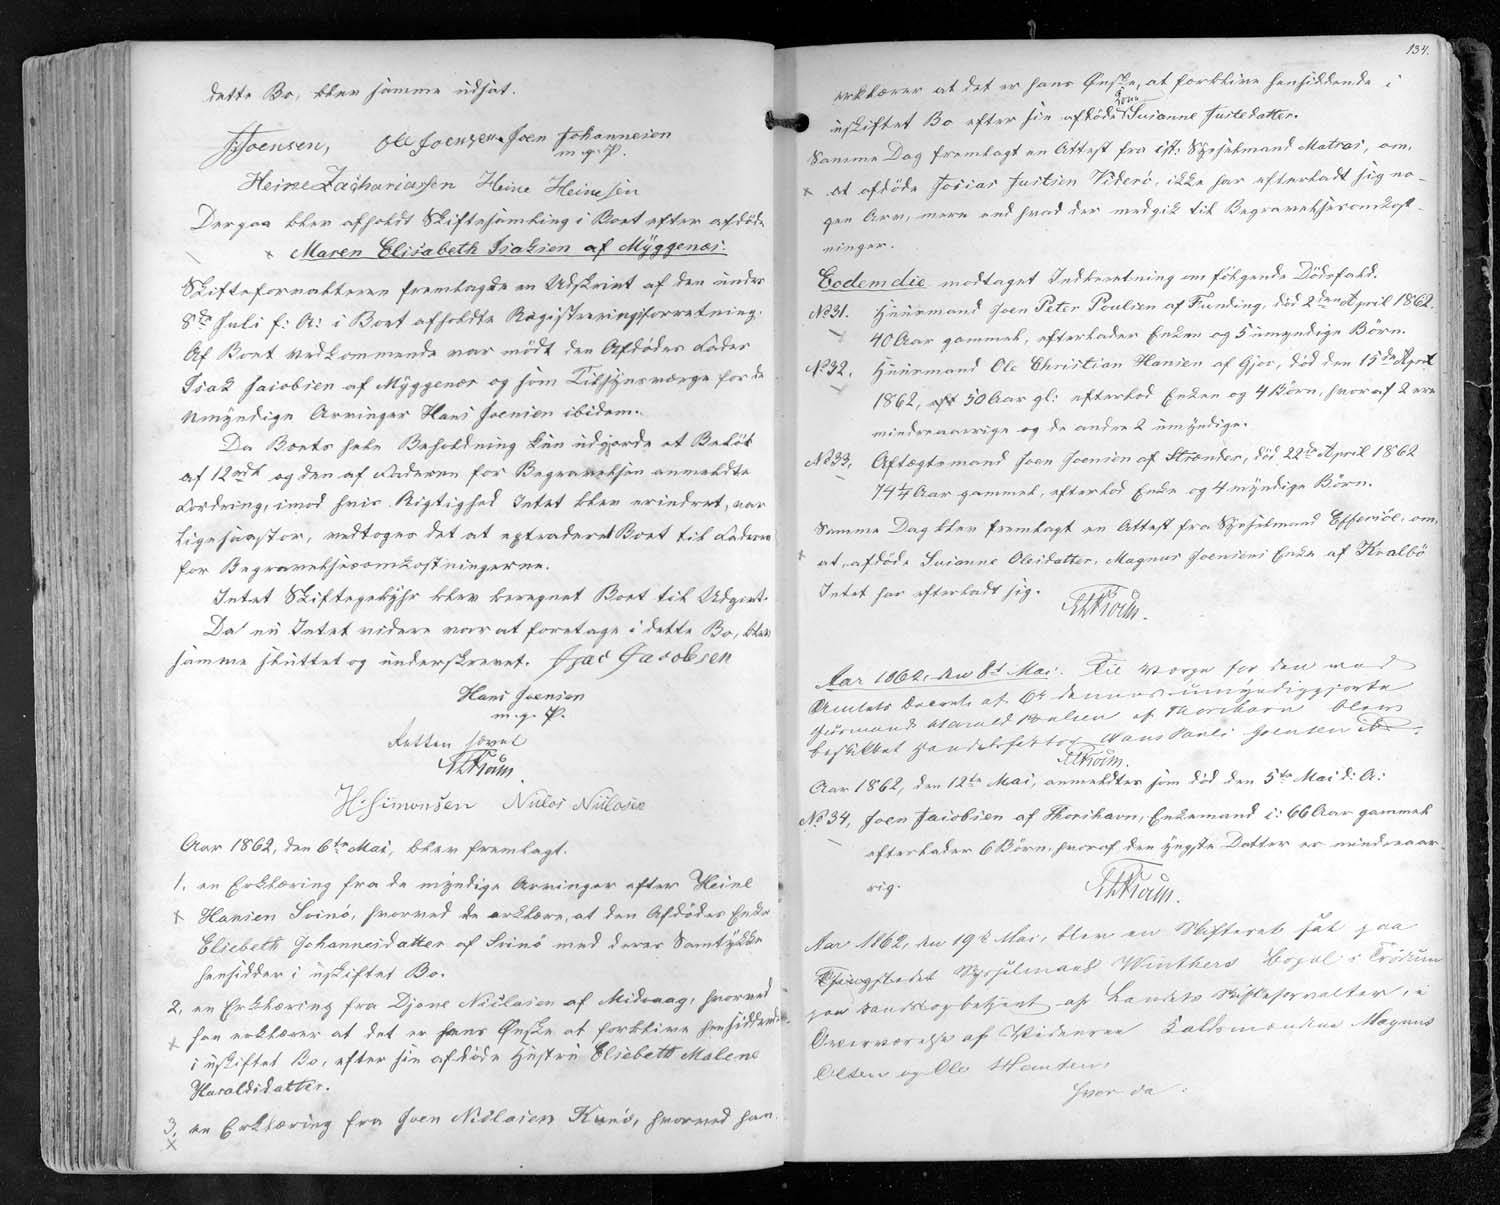 dette Bo, blev samme udsat.
JJoensen, Ole Joensen Joen Johannesen
m. g. P.
Heine Zachariassen Heine Heinesen
Derpaa blev afholdt Skiftesamling i Boet efter afdöde
Maren Elisabeth Isaksen af Myggenæs.
Skifteforvalteren fremlagde en Udskrivt af den under
8de Juli f: A: i Boet afholdte Registreringsforretning.
Af Boet vedkommende var mödt den Afdödes Fader
Isak Jacobsen af Myggenæs og som Tilsynsværge for de
umyndige Arvinger Hans Joensen ibidem.
Da Boets hele Beholdning kun udgjorde et Belöb
af 12 og den af Faderen for Begravelsen anmeldte
Fordring, imod hvis Rigtighed Intet blev erindret, var
ligesaastor, vedtoges det at extradere Boet til Faderen
for Begravelsesomkostningerne.
Intet Skiftegebyhr blev beregnet Boet til Udgivt.
Da nu Intet videre var at foretage i dette Bo, blev
samme sluttet og underskrevet. Isac Jacobsen
Hans Joensen
m. g. P.
Retten hævet
H. Simonsen Niclas Niclasen
Aar 1862, den 6te Mai, blev fremlagt.
1. en Erklæring fra de myndige Arvinger efter Heine
x Hansen Svinö, hvorved de erklære, at den Afdödes Enke
Elsebeth Johannesdatter af Svinö med deres Samtykke
hensidder i uskiftet Bo.
2. en Erklæring fra Djone Niclasen af Midvaag, hvorved
x han erklærer at det er hans Önske at forblive hensiddende
i uskiftet Bo, efter sin afdöde Hustru Elsebeth Malene
Haraldsdatter.
3. en Erklæring fra Joen Niclasen Kunö, hvorved han
x
134.
erklærer at det er hans Önske, at forblive hensiddende i
uskiftet Bo efter sin afdöde Kone Susanne Justesdatter.
Samme Dag fremlagt en Attest fra cst: Sysselmand Matras, om,
x at afdöde Josias Justsen Viderö, ikke har efterladt sig no-
gen Arv, mere end hvad der medgik til Begravelsesomkost-
ninger.
Eodem die modtaget Indberetning om fölgende Dödsfald.
No 31. Huusmand Joen Peter Poulsen af Funding, död 2den April 1862.
40 Aar gammel, efterlader Enken og 5 umyndige Börn.
No 32. Huusmand Ole Christian Hansen af Gjov, död den 15de April
1862, 50 Aar gl: efterlod Enken og 4 Börn, hvoraf 2 ere
mindreaarige og de andre 2 umyndige.
No 33. Aftægtsmand Joen Joensen af Strænder, död 22de April 1862
74 1/4 Aar gammel, efterlod Enke og 4 myndige Börn.
Samme Dag blev fremlagt en Attest fra Sysselmand Effersöe, om,
x at afdöde Susanne Olesdatter, Magnus Joensens Enke af Kvalbö
Intet har efterladt sig.
Aar 1862, den 8de Mai. Til Værge for den ved
Amtets Decret af 6te dennes umyndiggjorte
Huusmand Harald Poulsen af Thorshavn blev
beskikket Handelsfaktor Hans Pauli Joensen
Aar 1862, den 12te Mai, anmeldtes som död den 5te Mai d: A:
No 34. Joen Jacobsen af Thorshavn, Enkemand i: 66 Aar gammel
efterlader 6 Börn, hvoraf den yngste Datter er mindreaar-
rig.
Aar 1862, den 19de Mai, blev en Skifteret sat paa
Thingstedet Sysselmand Winthers Bopæl i Trödum
paa Sandöe og betjent af Landets Skifteforvalter, i
Overværelse af Vidnerne Laugsmændene Magnus
Olsen og Ole Hansen,
hvor da: